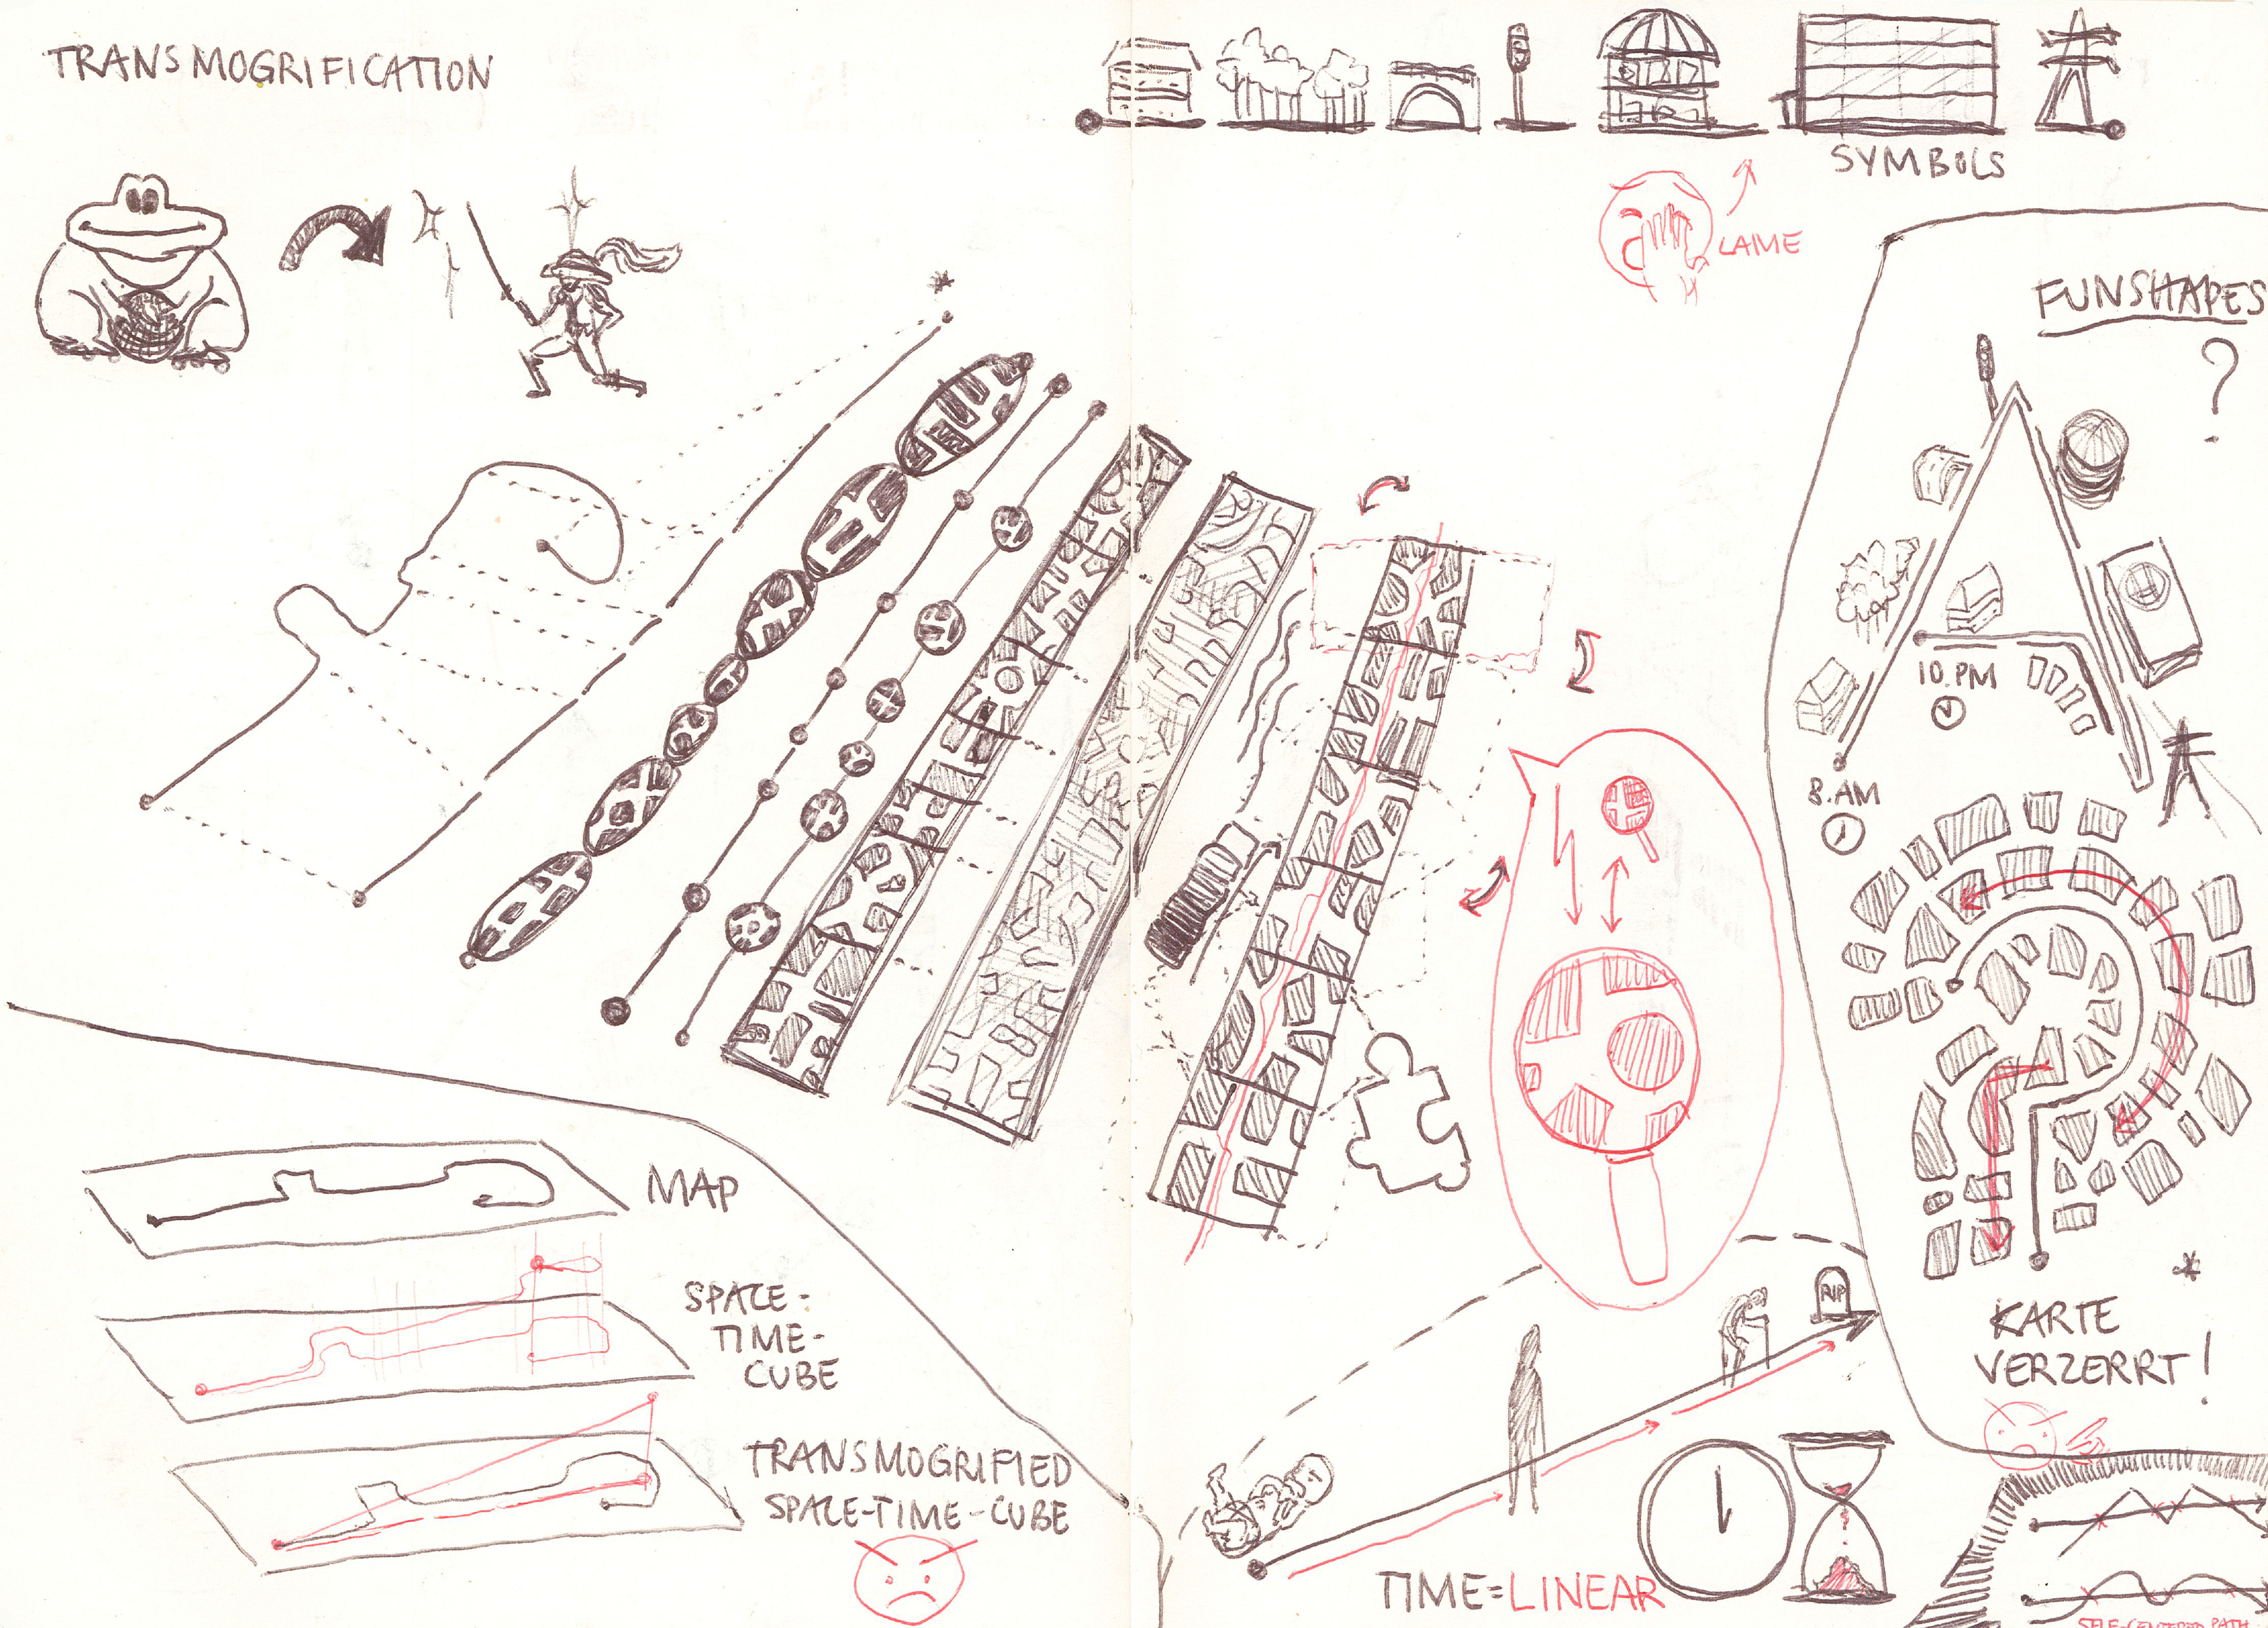 TRANSMOGRIFICATION
SYMBOLS
LAME
FUNSHAPES
?
10.PM
8.AM
MAP
SPACE-
TIME-
CUBE
TRANSMOGRIFIED
SPACE-TIME-CUBE
RIP
TIME=LINEAR
*
KARTE
VERZERRT!
SELF-CENTERED PATH